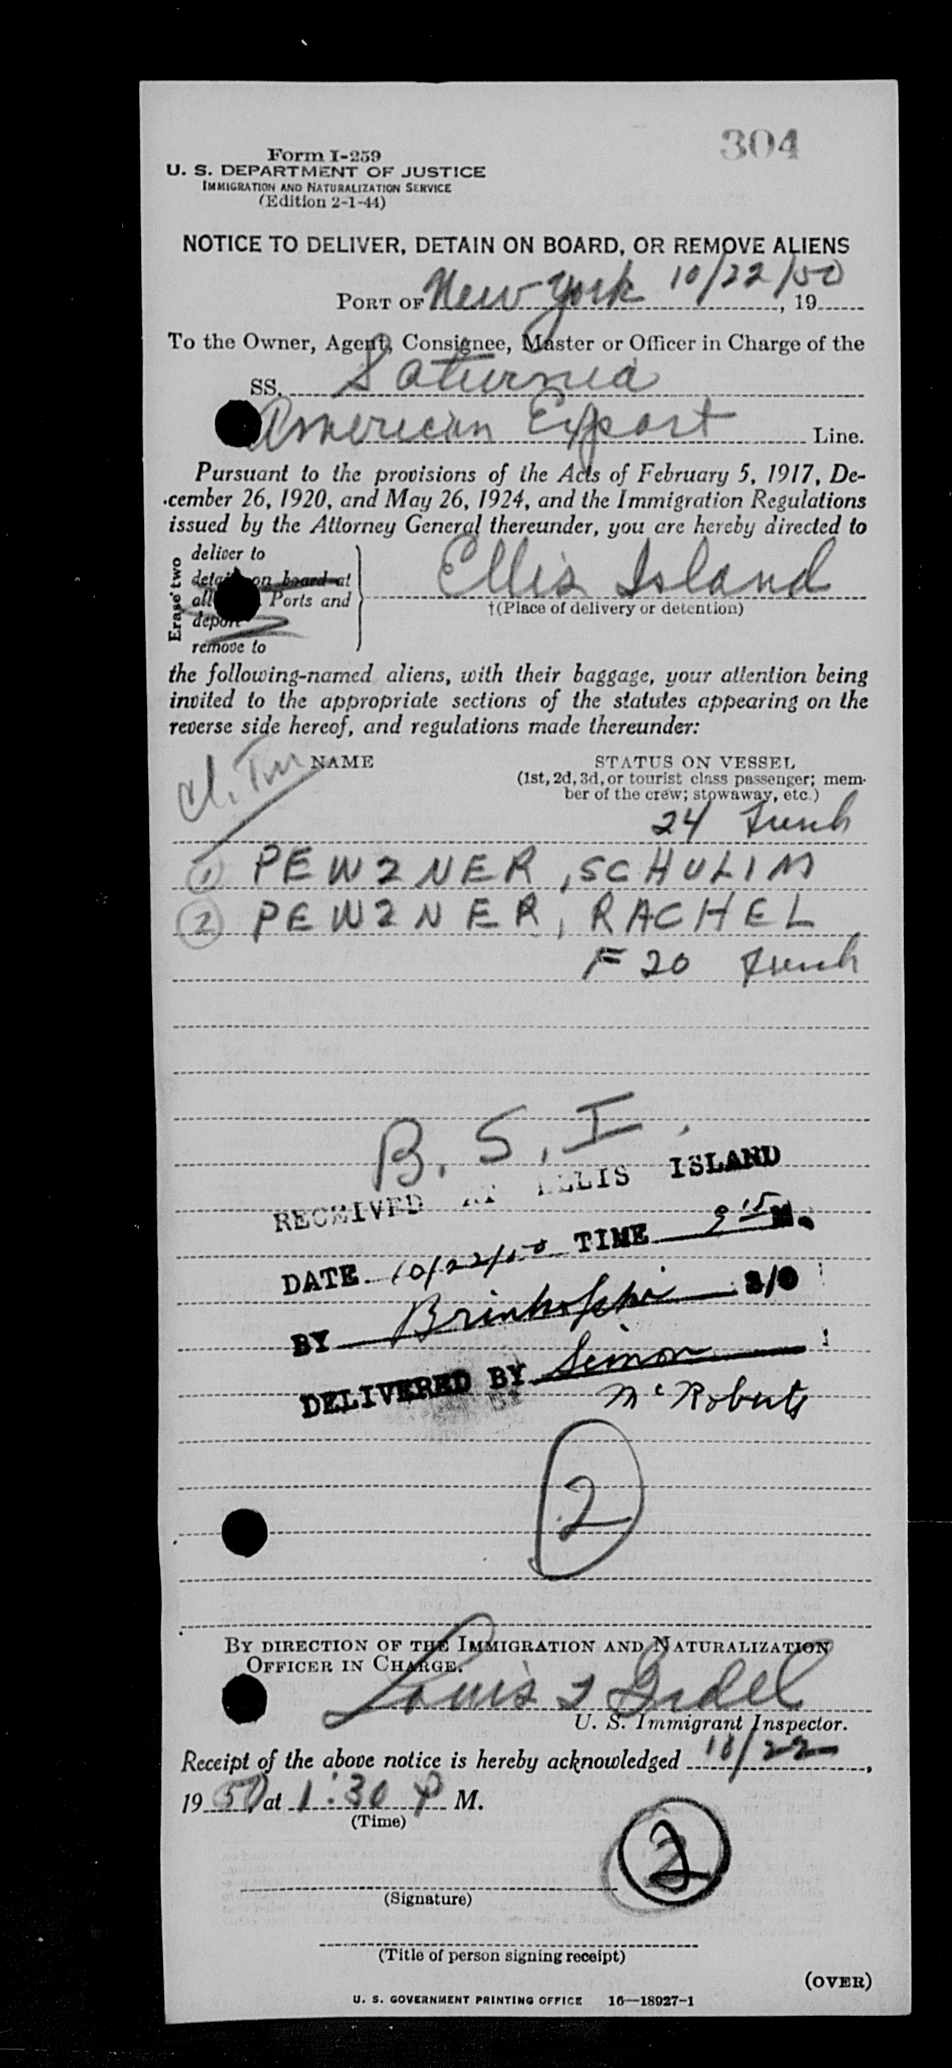 304
Form I-259
U. S. DEPARTMENT OF JUSTICE
IMMIGRATION AND NATURALIZATION SERVICE
(Edition 2-1-44)
NOTICE TO DELIVER, DETAIN ON BOARD, OR REMOVE ALIENS
PORT OF New York 10/22/50, 19
To the Owner, Agent, Consignee, Master or Officer in Charge of the
SS. Saturnia
American Export Line.
Pursuant to the provisions of the Acts of February 5, 1917, De-
cember 26, 1920, and May 26, 1924, and the Immigration Regulations
issued by the Attorney General thereunder, you are hereby directed to
Erase two
deliver to
detain on board at
all Ports and
deport
remove to
Ellis Island
†(Place of delivery or detention)
the following-named aliens, with their baggage, your attention being
invited to the appropriate sections of the statutes appearing on the
reverse side hereof, and regulations made thereunder:
NAME STATUS ON VESSEL
(1st, 2d, 3d, or tourist class passenger; mem-
ber of the crew; stowaway, etc.)
24 French
1 PEWZNER, SCHULIM
2 PEWZNER, RACHEL
F 20 French
B. S. I.
RECEIVED AT ELLIS ISLAND
DATE 10/22/50 TIME 9 15 M.
BY S/O
DELIVERED BY Simon
McRoberts
2
BY DIRECTION OF THE IMMIGRATION AND NATURALIZATION
OFFICER IN CHARGE.
Louis
U. S. Immigrant Inspector.
Receipt of the above notice is hereby acknowledged 10/22,
19 50, at 1:30 P M.
(Time)
2
(Signature)
(Title of person signing receipt)
(OVER)
U. S. GOVERNMENT PRINTING OFFICE 16—18927-1